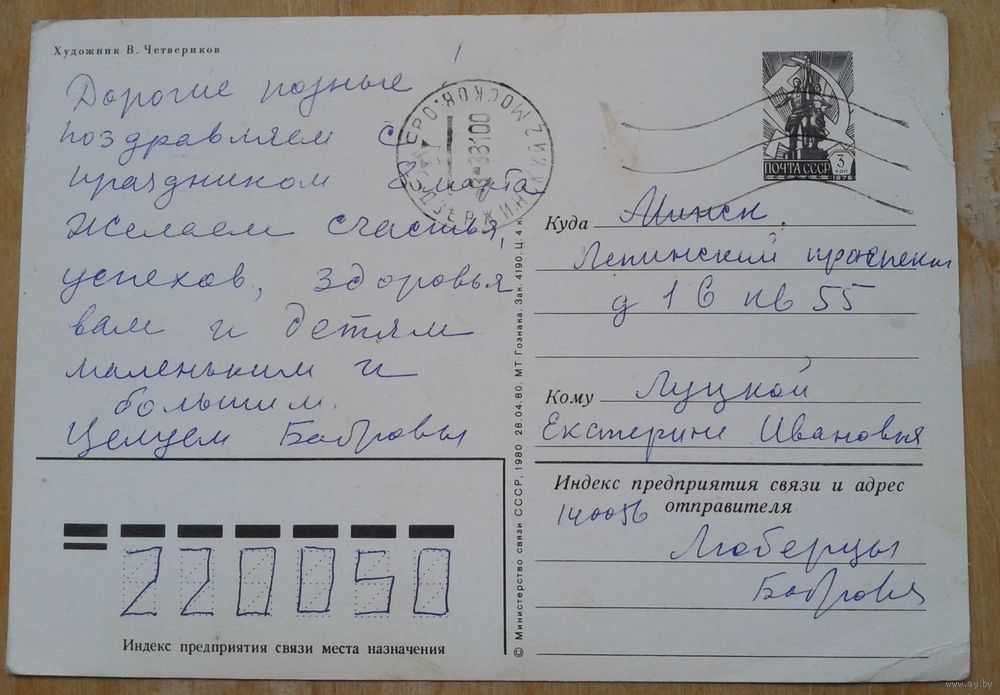 Художник В. Четвериков
Дорогие родные!
поздравляем с
праздником 8 марта
Желаем счастья,
успехов, здоровья
вам и детям
маленьким и
большим.
Целуем Бобровы
Индекс предприятия связи места назначения
220050
© Министерство связи СССР, 1980 28.04.80. МТ Гознака. Зак. 4190. Ц. 4 к.
ПОЧТА СССР
3 коп
1976
Куда Минск.
Ленинский проспект
д 1 б кв 55
Кому Луцкой
Екатерине Ивановне
Индекс предприятия связи и адрес
отправителя
140056
Люберцы
Боброва
www.ay.by